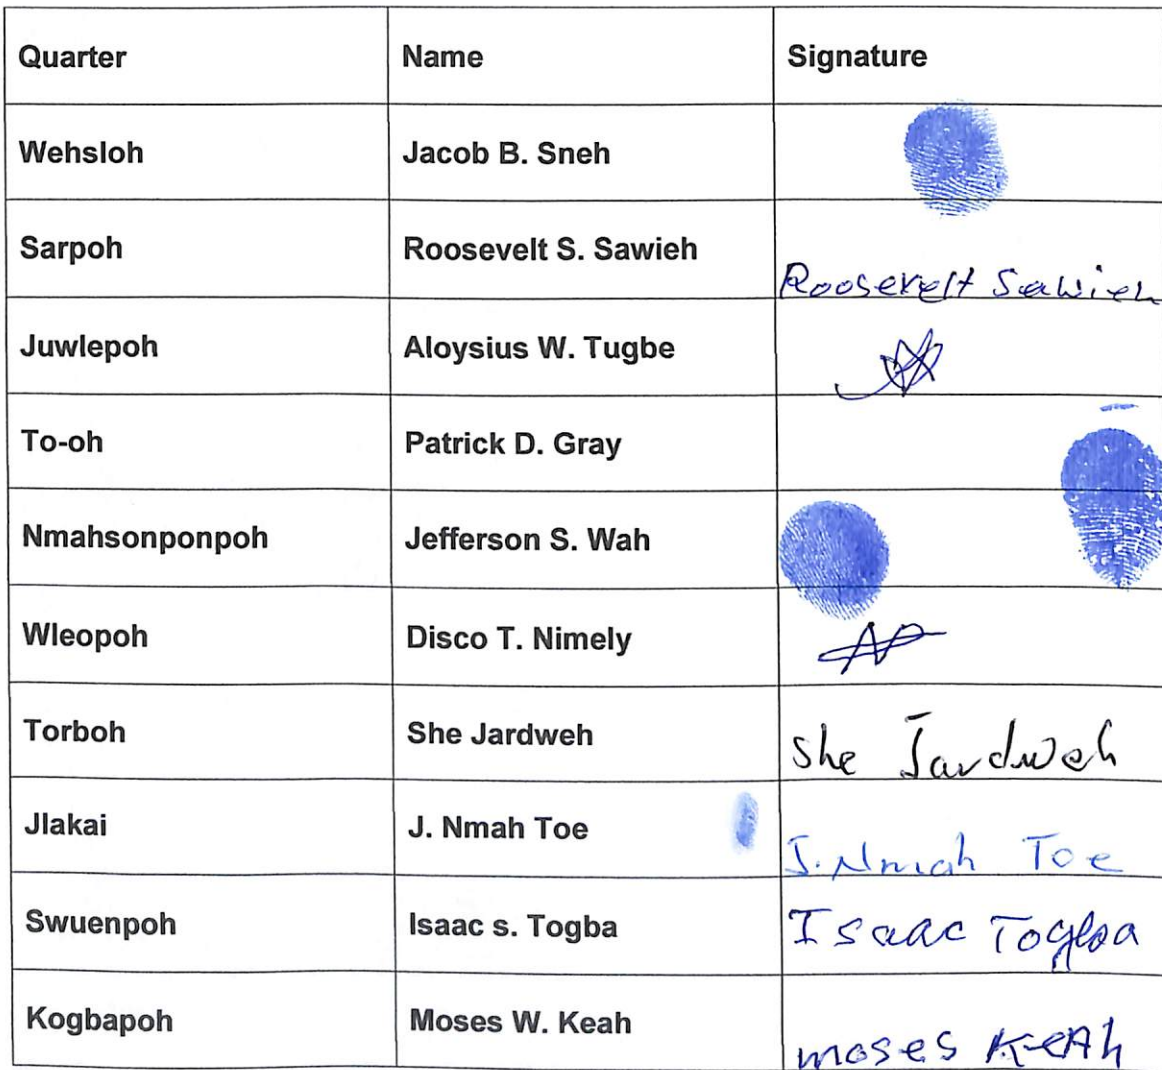 Quarter Name Signature
Wehsloh Jacob B. Sneh
Sarpoh Roosevelt S. Sawieh Roosevelt Sawieh
Juwlepoh Aloysius W. Tugbe
To-oh Patrick D. Gray
Nmahsonponpoh Jefferson S. Wah
Wleopoh Disco T. Nimely
Torboh She Jardweh She Jardweh
Jlakai J. Nmah Toe J. Nmah Toe
Swuenpoh Isaac s. Togba Isaac Togba
Kogbapoh Moses W. Keah moses KeAh